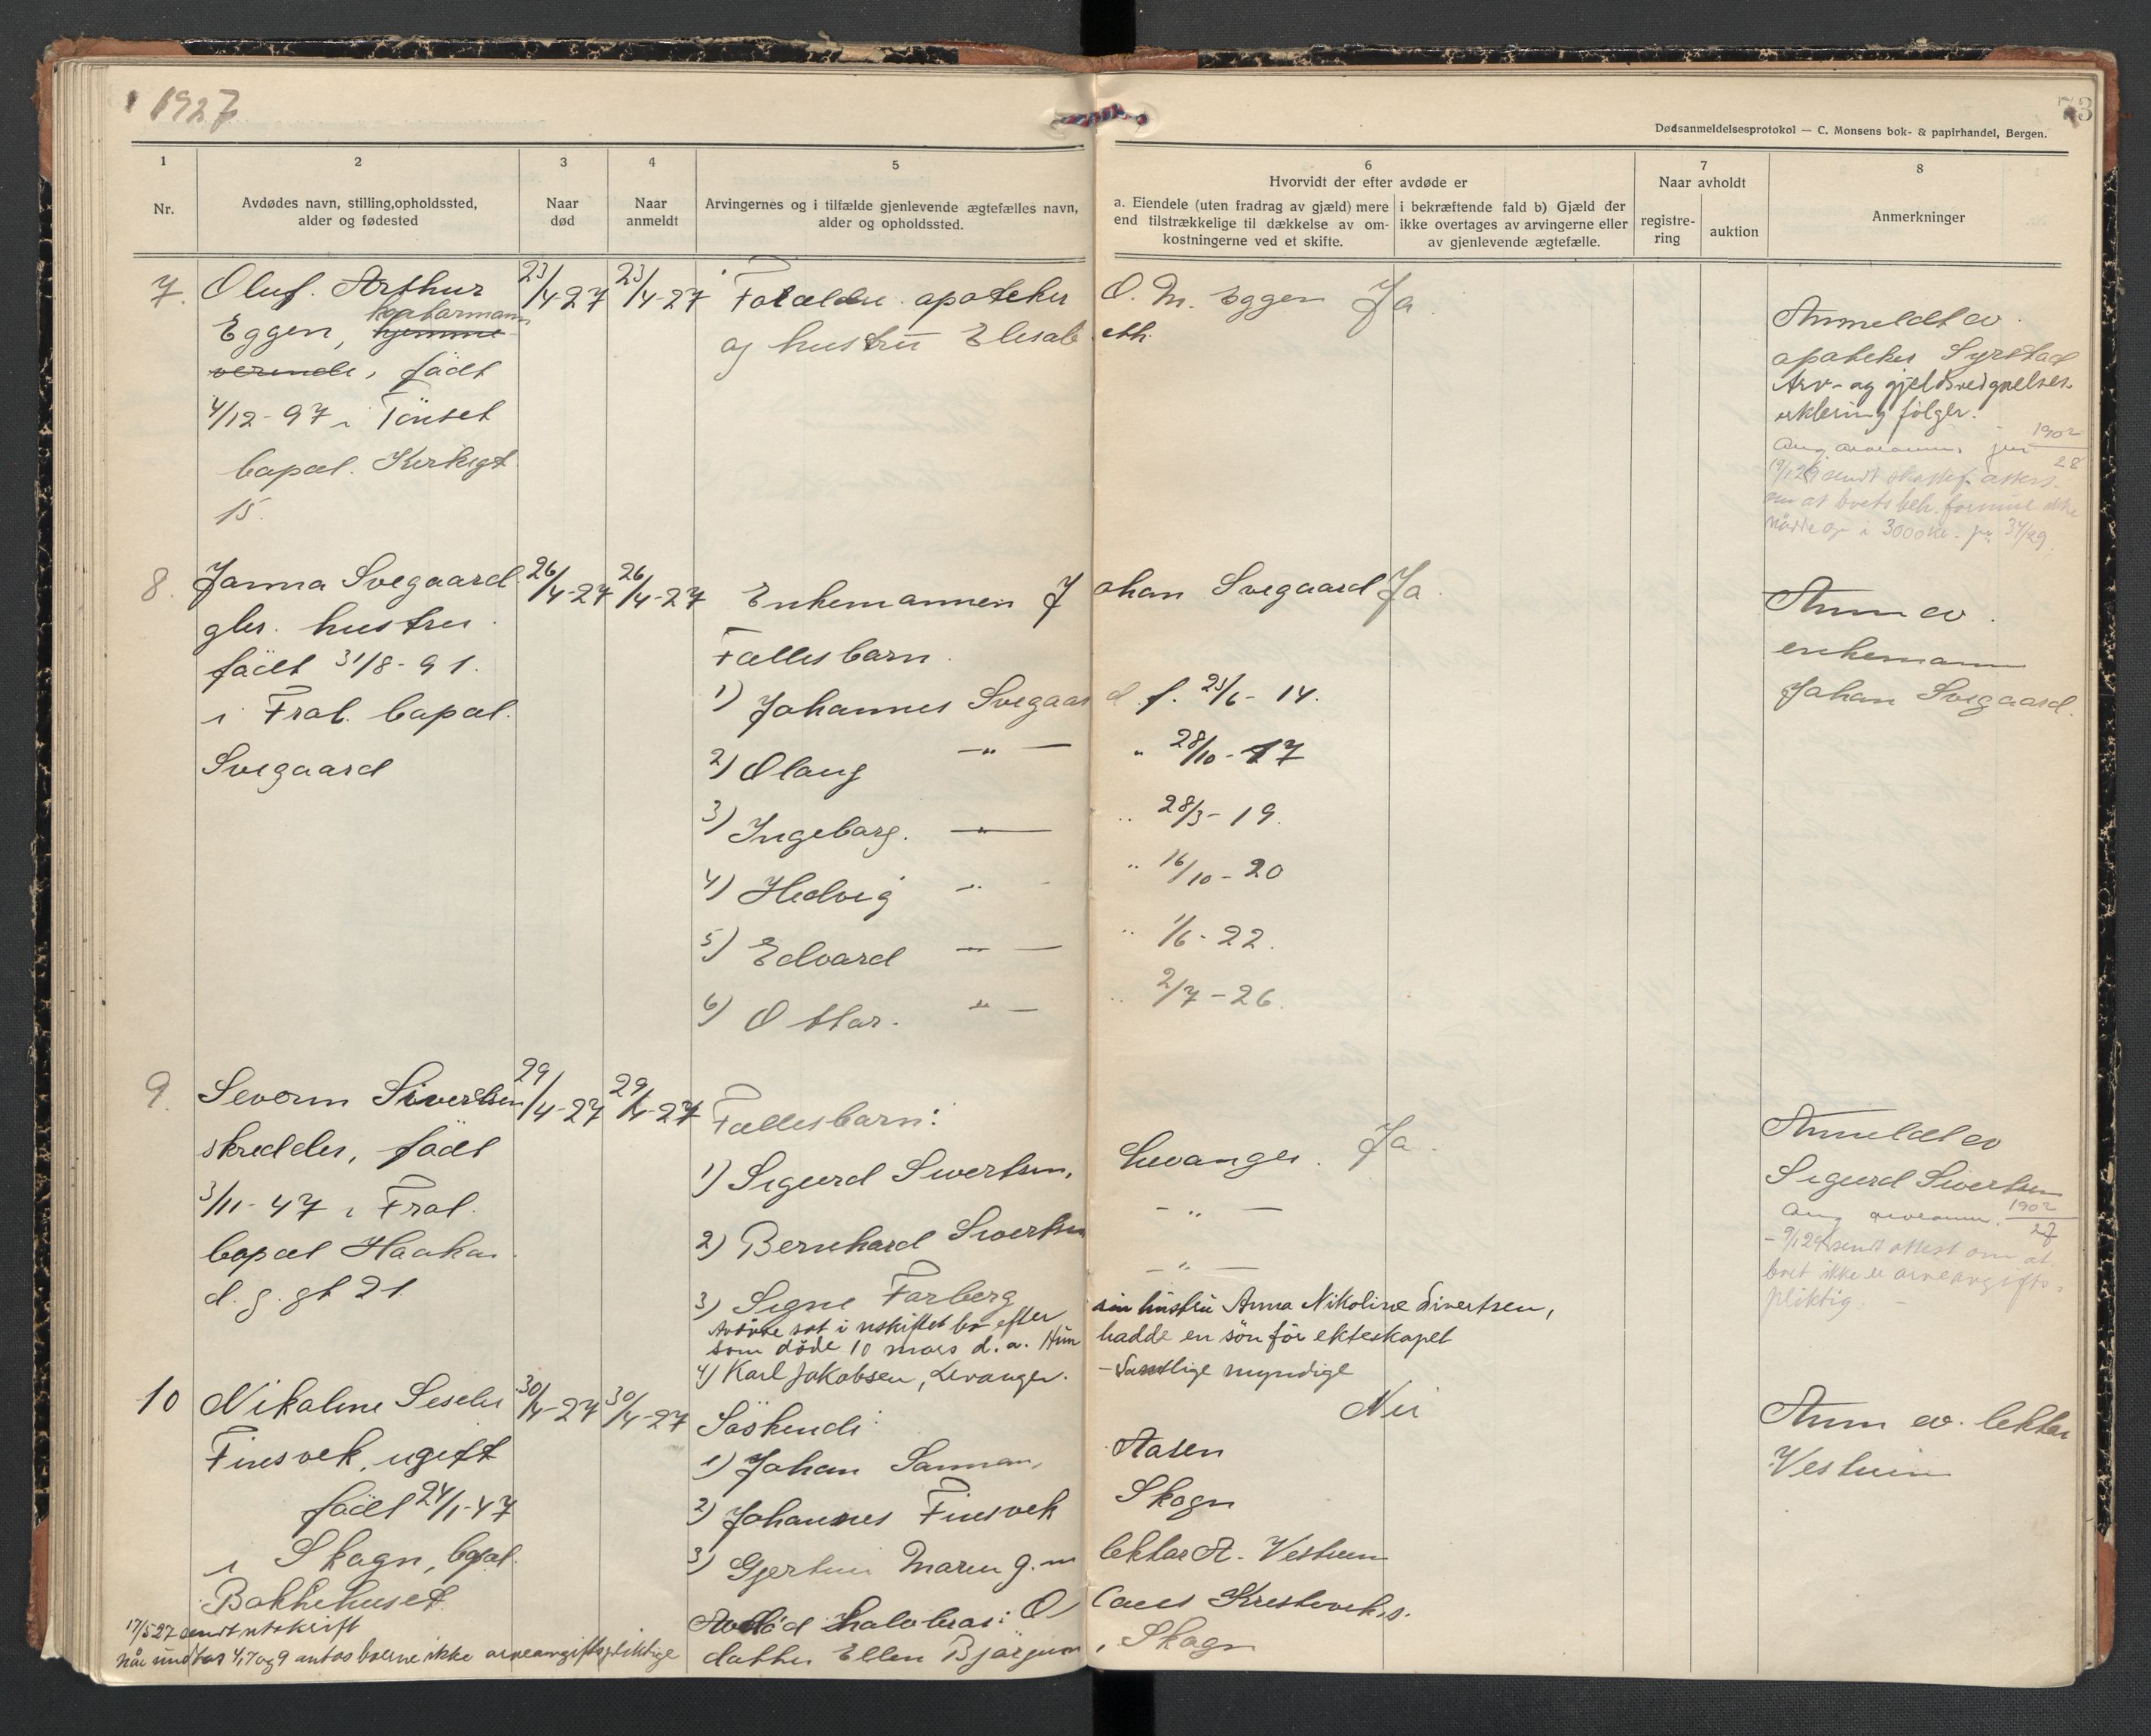 1927
73
Dødsanmeldelsesprotokol — C. Monsens bok- & papirhandel, Bergen.
1
2
3
4
5
6
7
8
Nr.
Avdødes navn, stilling, opholdssted,
alder og fødested
Naar
død
Naar
anmeldt
Arvingernes og i tilfælde gjenlevende ægtefælles navn,
alder og opholdssted.
Hvorvidt der efter avdøde er
a. Eiendele (uten fradrag av gjæld) mere
end tilstrækkelige til dækkelse av om-
kostningerne ved et skifte.
i bekræftende fald b) Gjæld der
ikke overtages av arvingerne eller
av gjenlevende ægtefælle.
Naar avholdt
registre-
ring
auktion
Anmerkninger
7.
Oluf. Arthur
kontormann
Eggen, hjemme-
verende, födt
4/12-97 i Tönset
bopæl. Kirkegt
15.
23/4-27
23/4-27
Forældre. apoteker O. M. Eggen
og hustru Elisabeth.
Ja
Anmeldt av
apoteker Syrstad
Arv- og gjeldsvedgaelses-
erklering følger.
1902
28
8.
Janna Svegaard
gbr. hustru
födt 31/8-91.
i Frol. bopæl.
Svegaard
26/4-27
26/4-27
Enkemannen Johan Svegaard
Ja.
Fællesbarn.
1) Johannes Svegaard f. 25/6-14.
2) Olaug -"- " 28/10-17
3) Ingeborg. -"- " 28/3-19.
4) Hedvig -"- " 16/10-20
5) Edvard -"- " 1/6-22.
6) Ottar. -"- " 2/7-26.
Anm av
enkemann
Johan Svegaard.
9.
Severin Sivertsen
skredder, födt
3/11-47 i Frol.
bopæl Haakon
d. g. gt 21
29/4-27
29/4-27
Fællesbarn:
1) Sigurd Sivertsen, Levanger.
Ja.
2) Bernhard Sivertsen -"-
3) Signe Forberg -"-
Avdøde sat i uskiftet bo efter sin hustru Anna Nikoline Sivertsen,
som døde 10 mars d.a. Hun hadde en sön för ekteskapet
4) Karl Jakobsen, Levanger. - Samtlige myndige
Anmeldt av
Sigurd Sivertsen
1902
27
sendt attest om at
boet ikke er arveavgifts-
pliktig
10
Nikoline
Finsvek, ugift
födt 24/1-47
i Skogn, bopæl.
Bakkehuset
30/4-27
30/4-27
Söskende:
Nei
1) Johan Sannan, Aasen
2) Johannes Finsvek Skogn
3) Gjertine Maren g. m lektor A. Vestrum
Avdöd halvbror:
datter Ellen Skogn
Anm av. lektor
Vestrum
17/5 27 sendt utskrift
når undtas 4, 7 og 9 antas boerne ikke arveavgiftspliktige